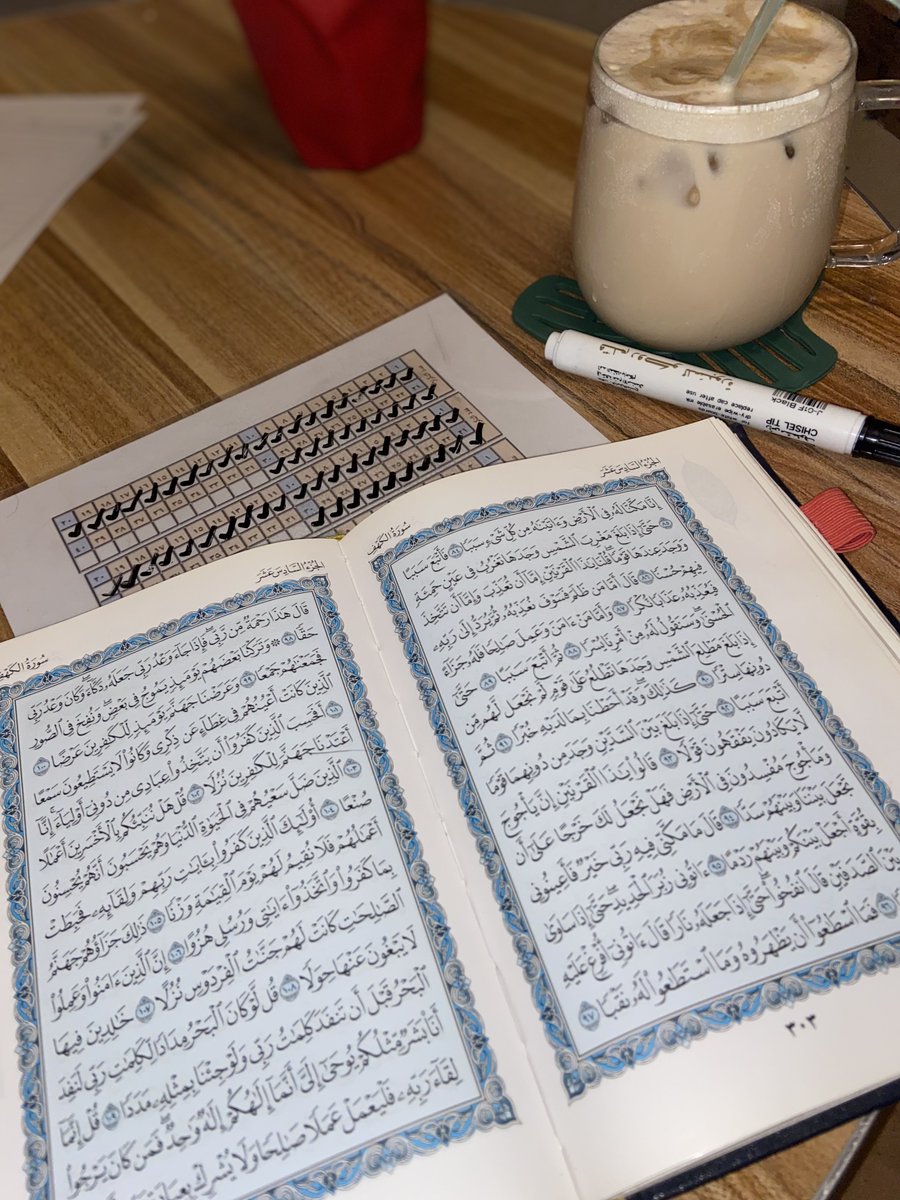 replace cap after use
J-01F Black
CHISEL TIP
سُورَةُ الكَهْفِ
الجُزْءُ السَّادِسَ عَشَرَ
إِنَّا مَكَّنَّا لَهُۥ فِى ٱلْأَرْضِ وَءَاتَيْنَٰهُ مِن كُلِّ شَىْءٍ سَبَبًا ٨٤ فَأَتْبَعَ سَبَبًا ٨٥
حَتَّىٰٓ إِذَا بَلَغَ مَغْرِبَ ٱلشَّمْسِ وَجَدَهَا تَغْرُبُ فِى عَيْنٍ حَمِئَةٍ
وَوَجَدَ عِندَهَا قَوْمًا ۗ قُلْنَا يَٰذَا ٱلْقَرْنَيْنِ إِمَّآ أَن تُعَذِّبَ وَإِمَّآ أَن تَتَّخِذَ
فِيهِمْ حُسْنًا ٨٦ قَالَ أَمَّا مَن ظَلَمَ فَسَوْفَ نُعَذِّبُهُۥ ثُمَّ يُرَدُّ إِلَىٰ رَبِّهِۦ
فَيُعَذِّبُهُۥ عَذَابًا نُّكْرًا ٨٧ وَأَمَّا مَنْ ءَامَنَ وَعَمِلَ صَٰلِحًا فَلَهُۥ جَزَآءً
ٱلْحُسْنَىٰ ۖ وَسَنَقُولُ لَهُۥ مِنْ أَمْرِنَا يُسْرًا ٨٨ ثُمَّ أَتْبَعَ سَبَبًا ٨٩ حَتَّىٰٓ
إِذَا بَلَغَ مَطْلِعَ ٱلشَّمْسِ وَجَدَهَا تَطْلُعُ عَلَىٰ قَوْمٍ لَّمْ نَجْعَل لَّهُم مِّن
دُونِهَا سِتْرًا ٩٠ كَذَٰلِكَ وَقَدْ أَحَطْنَا بِمَا لَدَيْهِ خُبْرًا ٩١ ثُمَّ
أَتْبَعَ سَبَبًا ٩٢ حَتَّىٰٓ إِذَا بَلَغَ بَيْنَ ٱلسَّدَّيْنِ وَجَدَ مِن دُونِهِمَا قَوْمًا
لَّا يَكَادُونَ يَفْقَهُونَ قَوْلًا ٩٣ قَالُوا۟ يَٰذَا ٱلْقَرْنَيْنِ إِنَّ يَأْجُوجَ
وَمَأْجُوجَ مُفْسِدُونَ فِى ٱلْأَرْضِ فَهَلْ نَجْعَلُ لَكَ خَرْجًا عَلَىٰٓ أَن
تَجْعَلَ بَيْنَنَا وَبَيْنَهُمْ سَدًّا ٩٤ قَالَ مَا مَكَّنِّى فِيهِ رَبِّى خَيْرٌ فَأَعِينُونِى
بِقُوَّةٍ أَجْعَلْ بَيْنَكُمْ وَبَيْنَهُمْ رَدْمًا ٩٥ ءَاتُونِى زُبَرَ ٱلْحَدِيدِ ۖ حَتَّىٰٓ إِذَا سَاوَىٰ
بَيْنَ ٱلصَّدَفَيْنِ قَالَ ٱنفُخُوا۟ ۖ حَتَّىٰٓ إِذَا جَعَلَهُۥ نَارًا قَالَ ءَاتُونِىٓ أُفْرِغْ عَلَيْهِ
قِطْرًا ٩٦ فَمَا ٱسْطَٰعُوٓا۟ أَن يَظْهَرُوهُ وَمَا ٱسْتَطَٰعُوا۟ لَهُۥ نَقْبًا ٩٧
٣٠٣
الجُزْءُ السَّادِسَ عَشَرَ
سُورَةُ الكَهْفِ
قَالَ هَٰذَا رَحْمَةٌ مِّن رَّبِّى ۖ فَإِذَا جَآءَ وَعْدُ رَبِّى جَعَلَهُۥ دَكَّآءَ ۖ وَكَانَ وَعْدُ رَبِّى
حَقًّا ٩٨ ۞ وَتَرَكْنَا بَعْضَهُمْ يَوْمَئِذٍ يَمُوجُ فِى بَعْضٍ ۖ وَنُفِخَ فِى ٱلصُّورِ
فَجَمَعْنَٰهُمْ جَمْعًا ٩٩ وَعَرَضْنَا جَهَنَّمَ يَوْمَئِذٍ لِّلْكَٰفِرِينَ عَرْضًا ١٠٠
ٱلَّذِينَ كَانَتْ أَعْيُنُهُمْ فِى غِطَآءٍ عَن ذِكْرِى وَكَانُوا۟ لَا يَسْتَطِيعُونَ سَمْعًا
١٠١ أَفَحَسِبَ ٱلَّذِينَ كَفَرُوٓا۟ أَن يَتَّخِذُوا۟ عِبَادِى مِن دُونِىٓ أَوْلِيَآءَ ۚ إِنَّآ
أَعْتَدْنَا جَهَنَّمَ لِلْكَٰفِرِينَ نُزُلًا ١٠٢ قُلْ هَلْ نُنَبِّئُكُم بِٱلْأَخْسَرِينَ أَعْمَٰلًا
١٠٣ ٱلَّذِينَ ضَلَّ سَعْيُهُمْ فِى ٱلْحَيَوٰةِ ٱلدُّنْيَا وَهُمْ يَحْسَبُونَ أَنَّهُمْ يُحْسِنُونَ
صُنْعًا ١٠٤ أُو۟لَٰٓئِكَ ٱلَّذِينَ كَفَرُوا۟ بِـَٔايَٰتِ رَبِّهِمْ وَلِقَآئِهِۦ فَحَبِطَتْ
أَعْمَٰلُهُمْ فَلَا نُقِيمُ لَهُمْ يَوْمَ ٱلْقِيَٰمَةِ وَزْنًا ١٠٥ ذَٰلِكَ جَزَآؤُهُمْ جَهَنَّمُ
بِمَا كَفَرُوا۟ وَٱتَّخَذُوٓا۟ ءَايَٰتِى وَرُسُلِى هُزُوًا ١٠٦ إِنَّ ٱلَّذِينَ ءَامَنُوا۟ وَعَمِلُوا۟
ٱلصَّٰلِحَٰتِ كَانَتْ لَهُمْ جَنَّٰتُ ٱلْفِرْدَوْسِ نُزُلًا ١٠٧ خَٰلِدِينَ فِيهَا
لَا يَبْغُونَ عَنْهَا حِوَلًا ١٠٨ قُل لَّوْ كَانَ ٱلْبَحْرُ مِدَادًا لِّكَلِمَٰتِ رَبِّى لَنَفِدَ
ٱلْبَحْرُ قَبْلَ أَن تَنفَدَ كَلِمَٰتُ رَبِّى وَلَوْ جِئْنَا بِمِثْلِهِۦ مَدَدًا ١٠٩ قُلْ إِنَّمَآ
أَنَا۠ بَشَرٌ مِّثْلُكُمْ يُوحَىٰٓ إِلَىَّ أَنَّمَآ إِلَٰهُكُمْ إِلَٰهٌ وَٰحِدٌ ۖ فَمَن كَانَ يَرْجُوا۟
لِقَآءَ رَبِّهِۦ فَلْيَعْمَلْ عَمَلًا صَٰلِحًا وَلَا يُشْرِكْ بِعِبَادَةِ